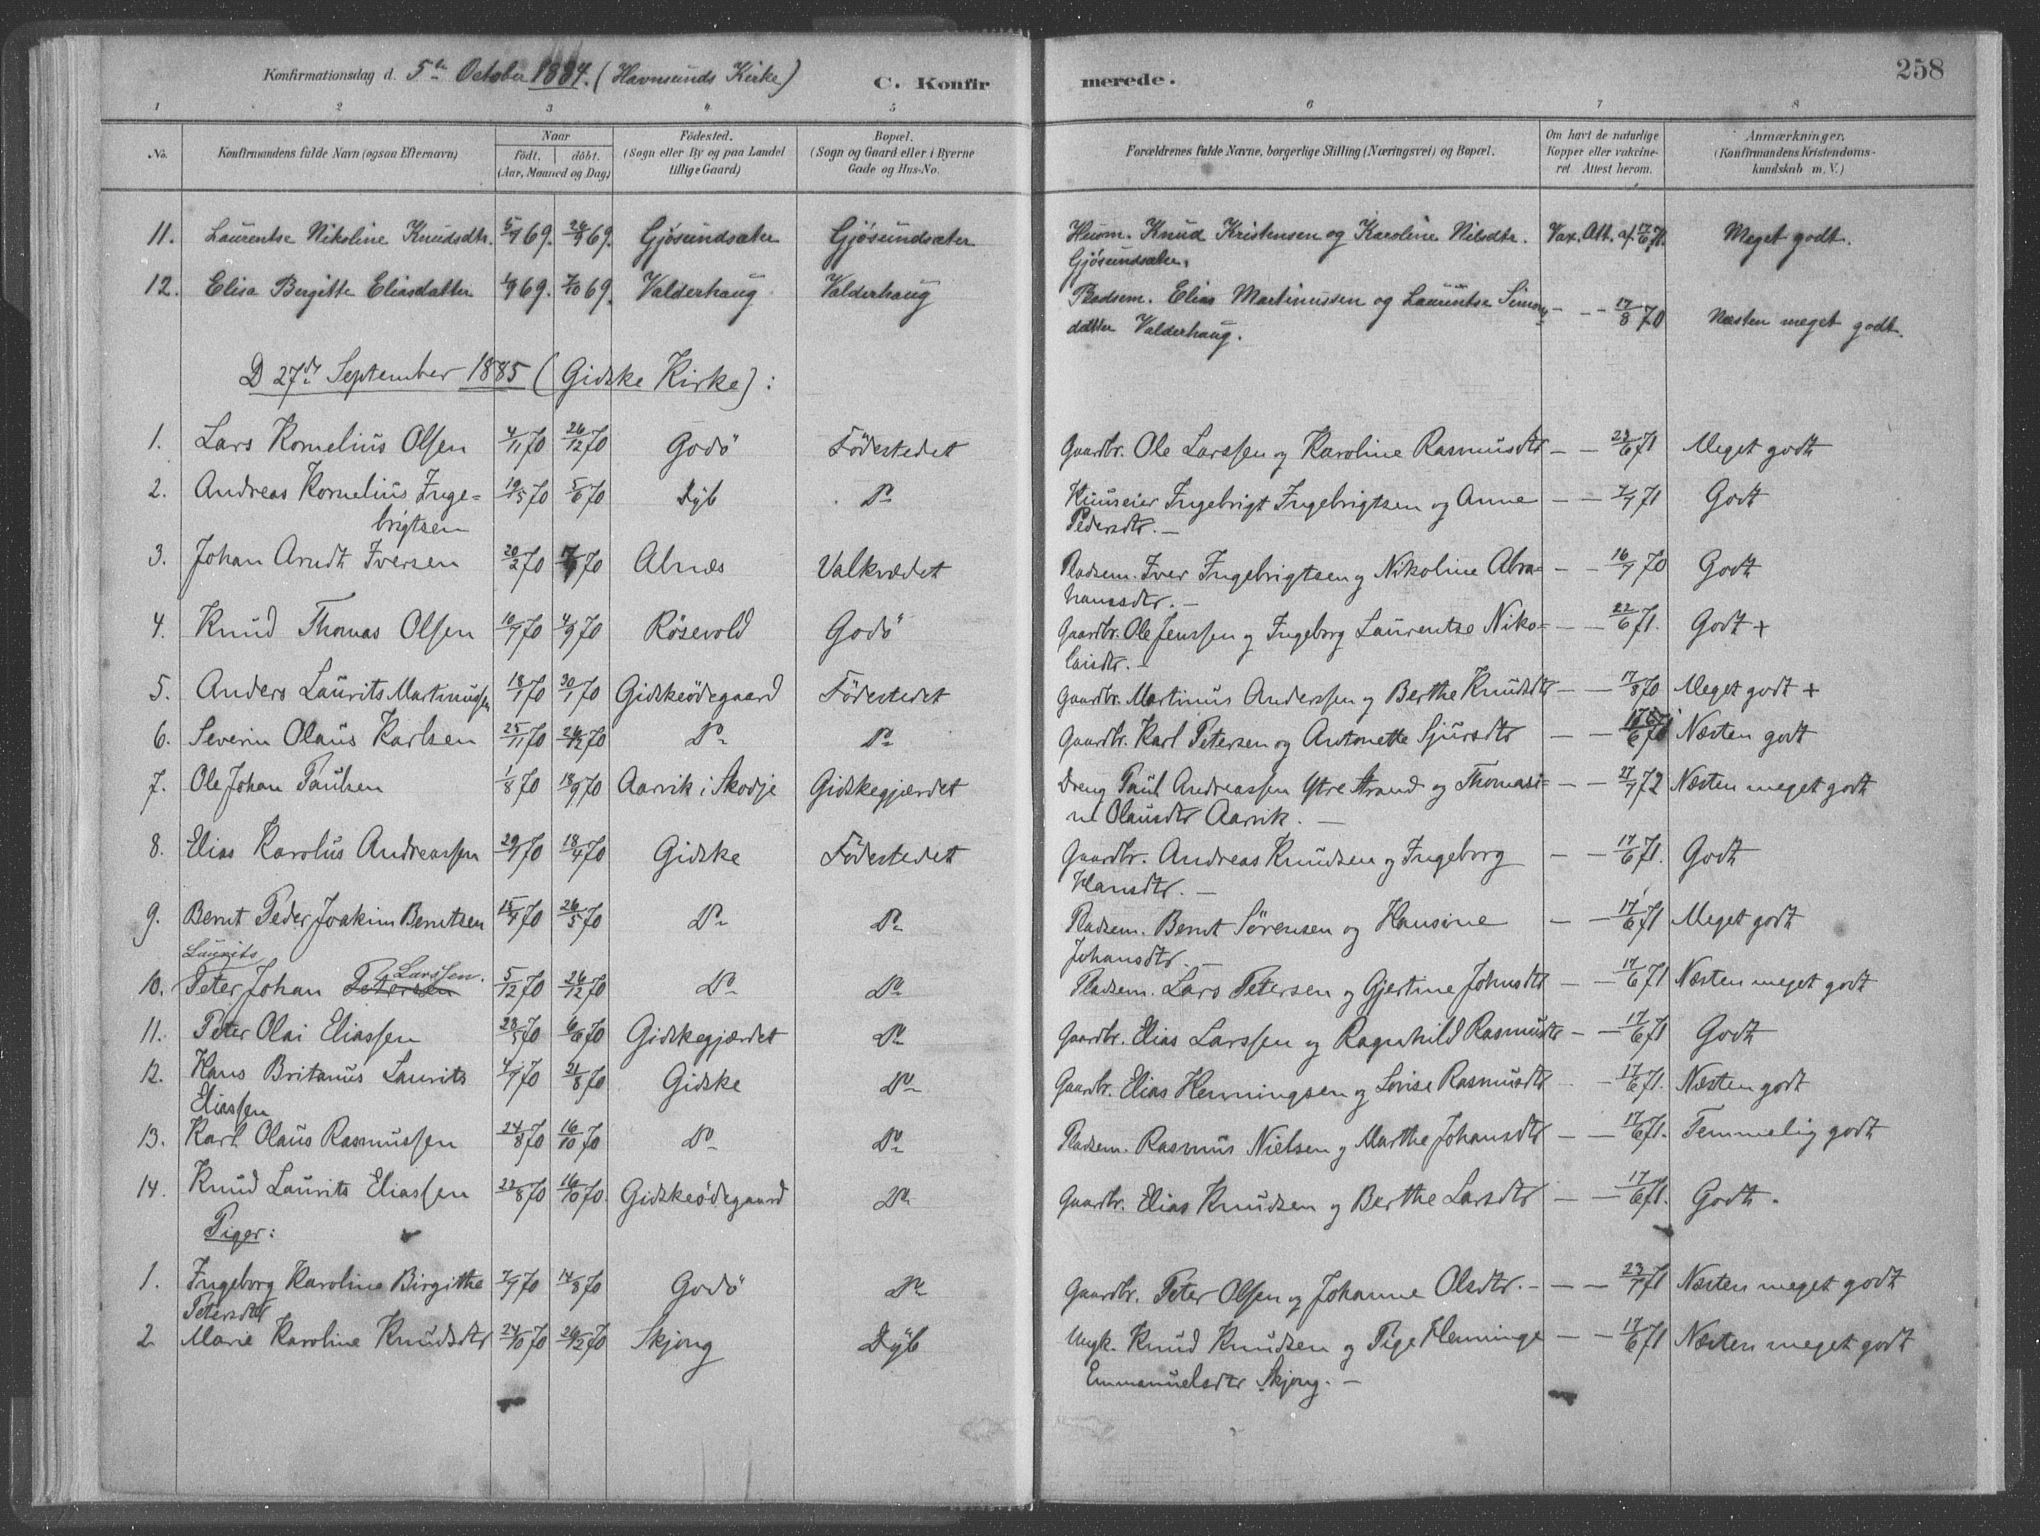 Konfirmationsdag d. 5te October 1884. (Havnsunds Kirke) C. Konfir merede. 258
1 2 3 4 5 6 7 8
No. Konfirmandens fulde Navn (ogsaa Efternavn) Naar födt. döbt. (Aar, Maaned og Dag) Födested. (Sogn eller By og paa Landet tillige Gaard) Bopæl. (Sogn og Gaard eller i Byerne Gade og Hus-No. Forældrenes fulde Navne, borgerlige Stilling (Næringsvei) og Bopæl. Om havt de naturlige Kopper eller vakcineret Attest herom. Anmærkninger. (Konfirmandens Kristendomskundskab m. V.)
11. Laurentse Nikoline Knudsdtr. 5/9 69. 26/9 69. Gjøsundsæter Gjøsundsæter Husm. Knud Kristensen og Karoline Nilsdtr. Vax. Att. af 17/6 71. Meget godt.
Gjøsundsæter.
12. Elisa Bergitte Eliasdatter 4/9 69. 7/10 69. Valderhaug Valderhaug Pladsem. Elias Martinussen og Laurentse Simons — — 17/8 70 Næsten meget godt.
datter Valderhaug.
D 27de September 1885 (Gidske Kirke):
1. Lars Kornelius Olsen 4/11 70 26/12 70 Godö Födestedet Gaardbr. Ole Larssen og Karoline Rasmusdtr — — 23/6 71 Meget godt
2. Andreas Kornelius Inge= 19/5 70 5/6 70 Dyb Do Huuseier Ingebrigt Ingebrigtsen og Anne — — 2/7 71 Godt
brigtsen Pedersdtr. —
3. Johan Arndt Iversen 20/2 70 17/4 70 Alnæs Valkvædet Pladsem. Iver Ingebrigtsen og Nikoline Abra= — — 16/9 70 Godt
hamsdtr. —
4. Knud Thomas Olsen 10/7 70 4/9 70 Rösevold Godö Gaardbr. Ole Jenssen og Ingeborg Laurentse Niko= — — 22/6 71. Godt +
laisdtr. —
5. Anders Laurits Martinussen 18/1 70 30/1 70 Gidskeödegaard Födestedet Gaardbr. Martinus Anderssen og Berthe Knudsdtr — — 17/8 70 Meget godt +
6. Severin Olaus Karlsen 25/11 70 26/12 70 Do Do Gaardbr. Karl Petersen og Antonette Sjursdtr — — 17/6 71 Næsten godt
7. Ole Johan Paulsen 1/8 70 18/9 70 Aarvik i Skodje Gidskegjærdet Dreng Paul Andreassen Ytre Strand og Thomasi= — — 27/7 72 Næsten meget godt
ne Olausdtr Aarvik. —
8. Elias Karolus Andreassen 29/1 70 18/4 70 Gidske Födestedet Gaardbr. Andreas Knudsen og Ingeborg — — 17/6 71. Godt
Hansdtr. —
9. Bernt Peder Joakim Berntsen 15/4 70 26/5 70 Do Do Pladsem. Bernt Sørensen og Hansine — — 17/6 71 Meget godt
Johansdtr. —
Laurits Larssen.
10. Peter Johan Petersen 5/12 70 26/12 70 Do Do Pladsem. Lars Petersen og Gjertine Johnsdtr — — 17/6 71 Næsten meget godt
11. Peter Olai Eliassen 23/5 70 6/6 70 Gidskegjærdet Do Gaardbr. Elias Larssen og Ragnhild Rasmusdtr — — 17/6 71 Godt
12. Hans Britanus Laurits 4/7 70 21/8 70 Gidske Do Gaardbr. Elias Henningsen og Lovise Rasmusdtr — — 17/6 71. Næsten godt
Eliassen
13. Karl Olaus Rasmussen 24/8 70 16/10 70 Do Do Pladsem. Rasmus Nielsen og Marthe Johansdtr — — 17/6 71. Temmelig godt
14. Knud Laurits Eliassen 22/8 70 16/10 70. Gidskeödegaard Do Gaardbr. Elias Knudsen og Berthe Larsdtr — — 17/6 71. Godt.
Piger:
1. Ingeborg Karoline Birgitha 2/7 70 14/8 70 Godö Do Gaardbr. Peter Olsen og Johanne Olsdtr. — — — 23/7 71 Næsten meget godt
Petersdtr
2 Marie Karoline Knudsdtr 24/10 70 26/12 70 Skjong Dyb Ungk. Knud Knudsen og Pige Henninge — — 17/6 71 Næsten meget godt
Emmanuelsdtr Skjong. —